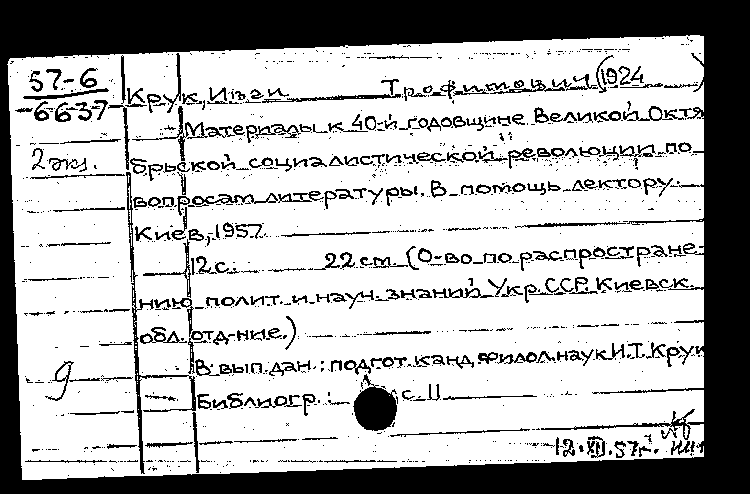 57-6
6637
Крук, Иван Трофимович (1924 )
Материалы к 40-й годовщине Великой Октя
2 экз.
брьской социалистической революции по
вопросам литературы. В помощь лектору.
Киев, 1957
12 с. 22 см (О-во по распростране-
нию полит. и науч. знаний Укр. ССР. Киевск.
обл. отд-ние.)
В вып. дан.: подгот. канд. филол. наук И.Т. Крук
Библиогр.: с. 11
12.XII.57г.